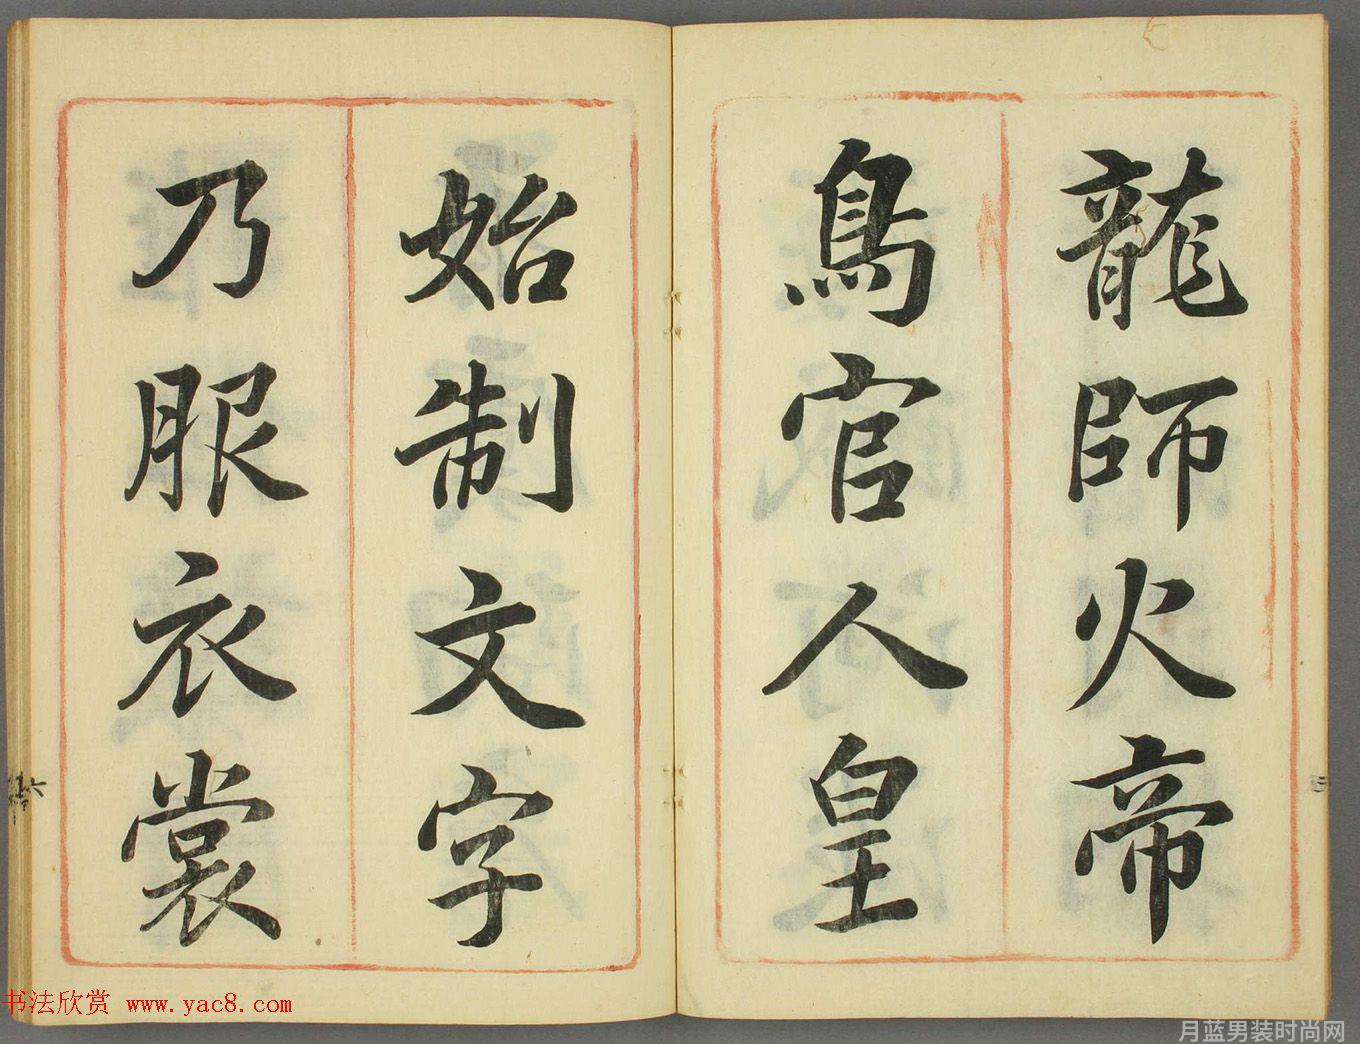 龍師火帝
鳥官人皇
始制文字
乃服衣裳
书法欣赏 www.yac8.com
月蓝男装时尚网